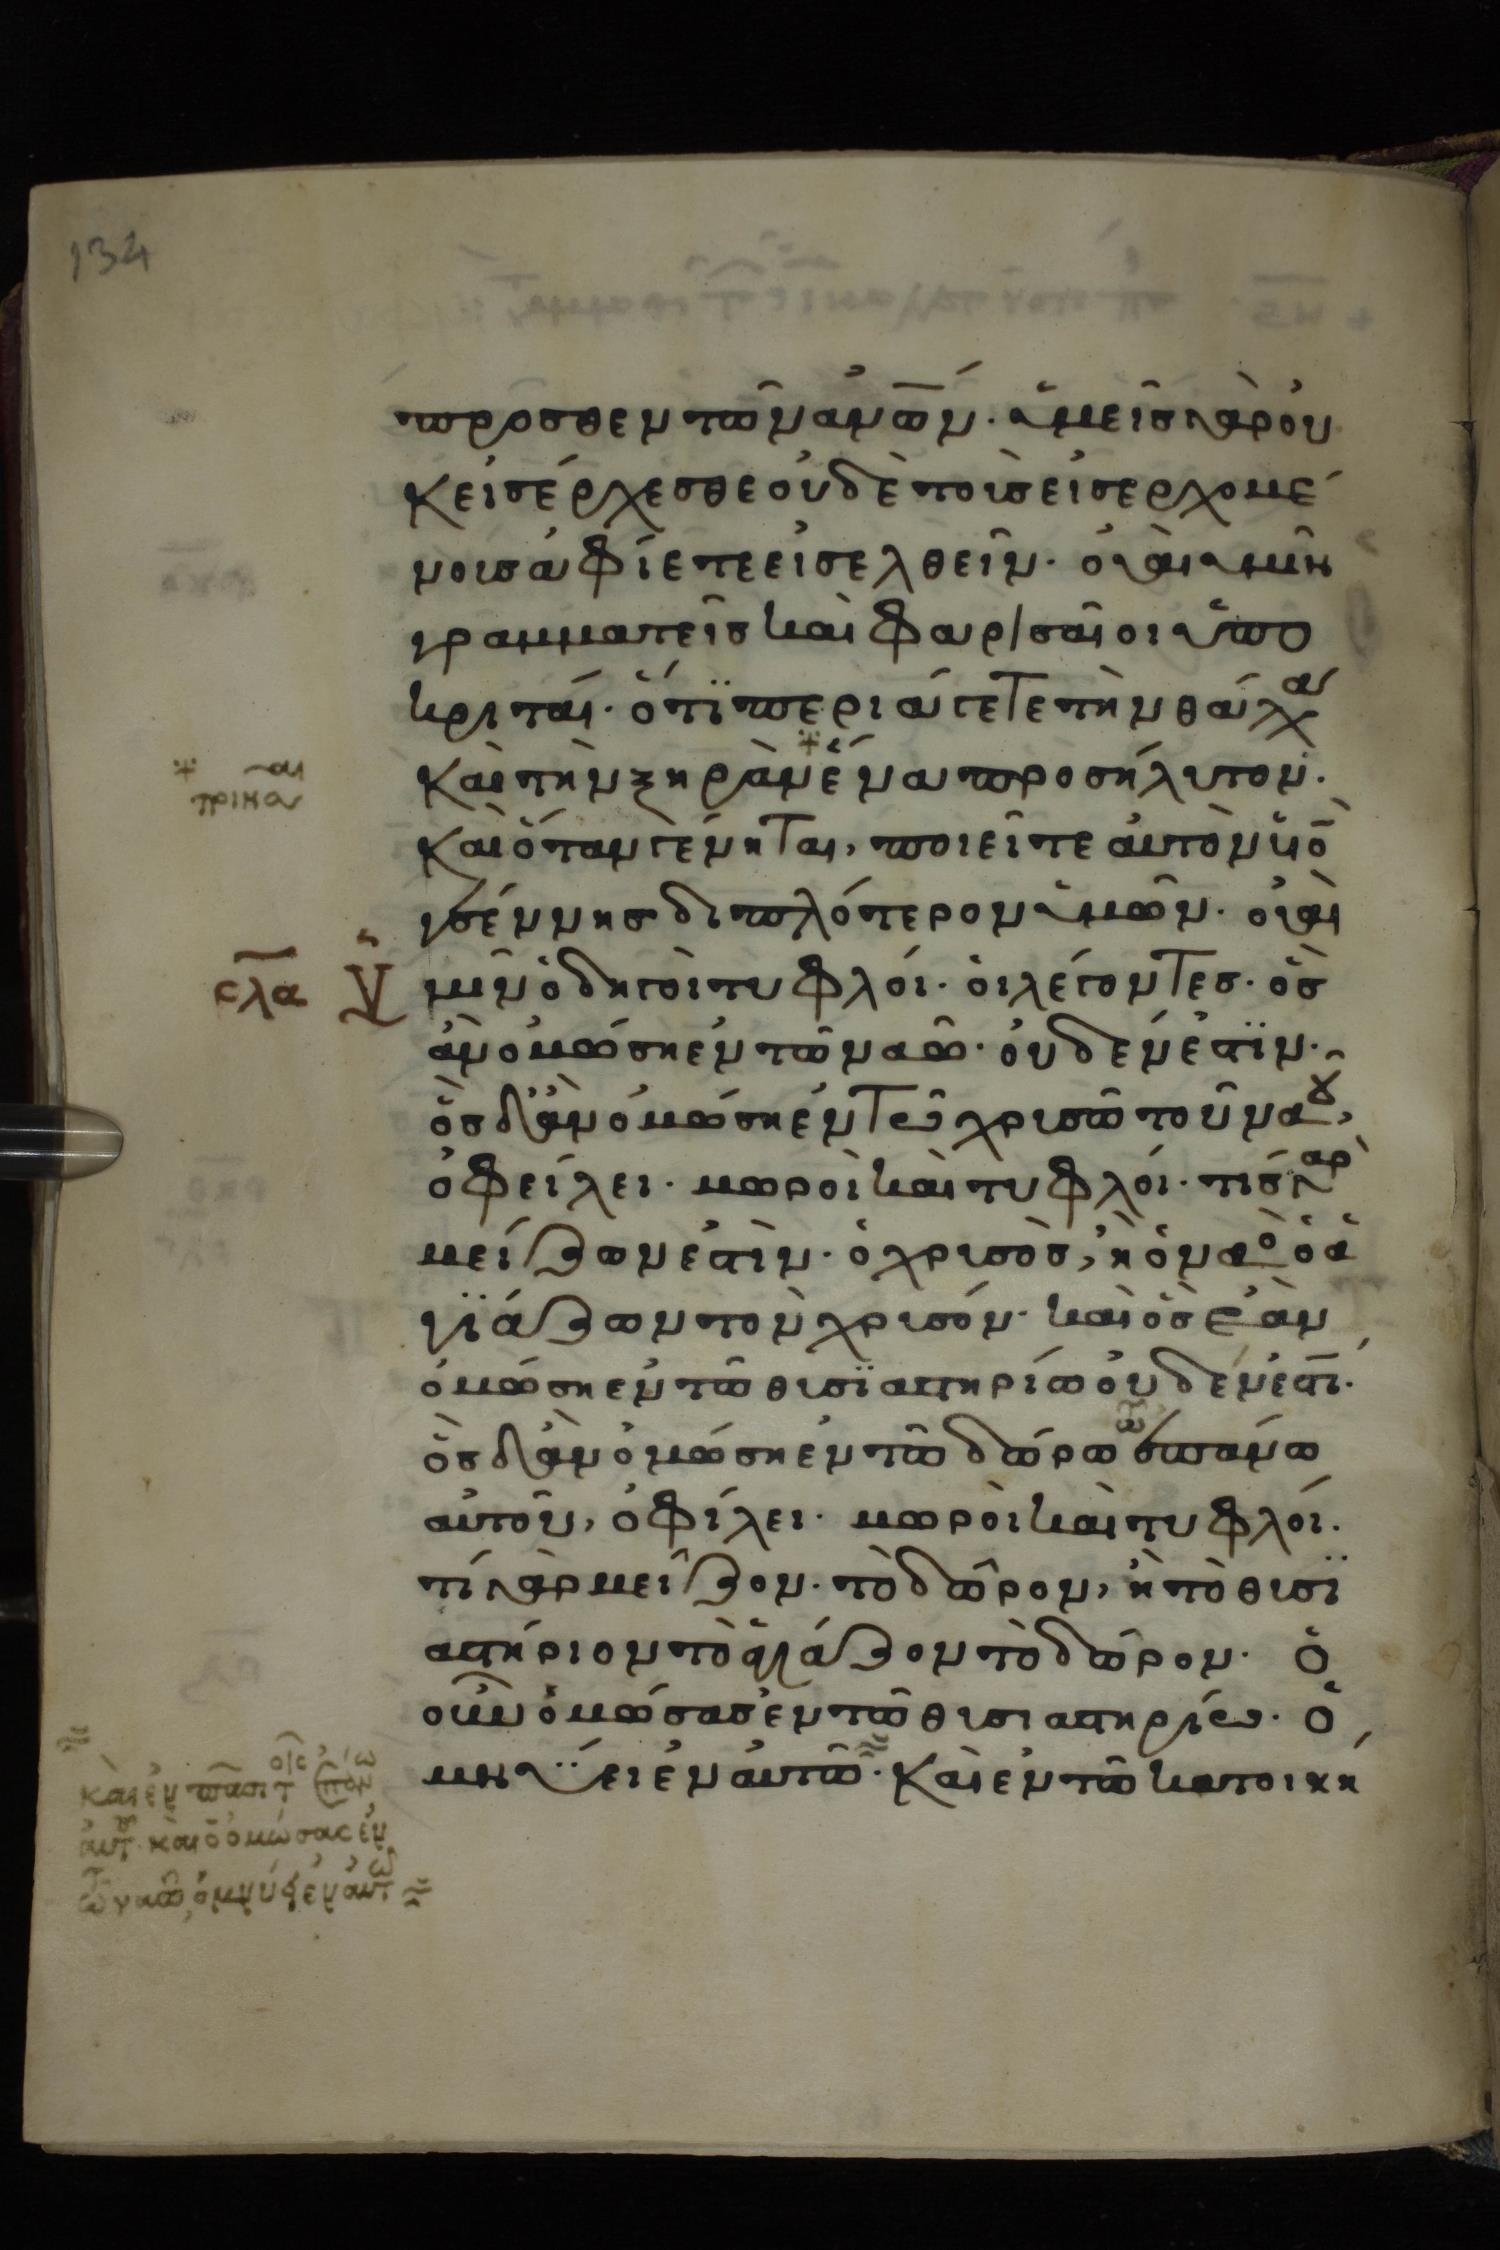 134
προσθεν τῶν ἀν̅ω̅ν. ὑμεῖς γὰρ οὐ
κ εἰσέρχεσθε οὐδὲ τοὺς εἰσερχομέ
νους ἀφίετε εἰσελθεῖν. οὐαὶ ὑμῖν
γραμματεῖς καὶ φαρισαῖοι ὑπο
κριταί. ὅτϊ περιάγετε τὴν θάλα
καὶ τὴν ξηρὰν ἕνα προσήλυτον.
ποιῆσαι
καὶ ὅταν γένηται, ποιεῖτε αὐτὸν υἱὸ
γεέννης διπλότερον ὑμῶν. οὐαὶ
σλα
ὑμῖν ὁδηγοὶ τυφλοί. οἱ λέγοντες. ὃς
ἂν ὀμώση ἐν τῶ ναῶ. οὐδέν ἐστϊν.
ὃς δ' ἂν ὀμώση ἐν τῶ χρυσῶ τοῦ ναοῦ,
ὀφείλει. μωροὶ καὶ τυφλοί. τίς γὰρ
μείζων ἐστὶν. ὁ χρυσὸς, ἢ ὁ ναὸς ὁ ἁ
γϊάζων τὸν χρυσόν. καὶ ὃς ἐὰν
ὀμώση ἐν τῶ θυσϊαστηρίω οὐδέν ἐστϊ.
ὃς δ' ἂν ὀμώση ἐν τῶ δώρω τῶ ἐπάνω
αὐτοῦ, ὀφίλει. μωροὶ καὶ τυφλοί.
τί γὰρ μεῖζον. τὸ δῶρον, ἢ τὸ θυσϊ
αστήριον τὸ ἁγιάζον τὸ δῶρον. ὁ
οὖν ὀμώσας ἐν τῶ θυσιαστηρίω. ὀ
μνύει ἐν αὐτῶ. καὶ ἐν τῶ κατοικη
καὶ ἐν πᾶσι τοῖς ἐπάνω
αὐτοῦ. καὶ ὁ ὀμώσας ἐν
τῶ ναῶ, ὀμνύει ἐν αὐτῶ